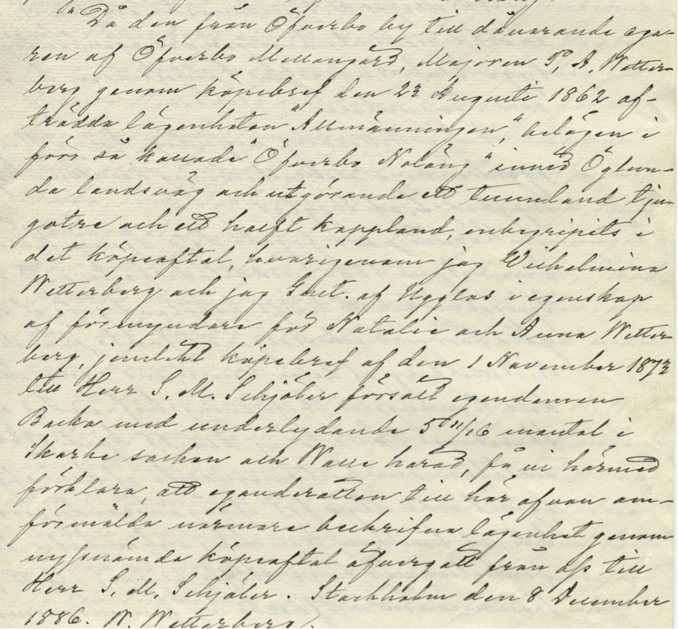 "Då den från Öfverbo by till dåvarande ega-
ren af Öfverbo Mellangård, Majoren P. A. Wetter-
berg genom köpebref den 23 Augusti 1862 af-
trädda lägenheten "Allmänningen," belägen i
förr så kallade "Öfverbo Noläng" invid Öglun-
da landsväg och utgörande ett tunnland tju-
gotre och ett halft kappland, inbegripits i
det köpeaftal, hvarigenom jag Vilhelmina
Wetterberg och jag Gust. af Ugglas i egenskap
af förmyndare för Natalie och Anna Wetter-
berg, jemlikt köpebref af den 1 November 1873
till Herr S. M. Schjöler försålt egendomen
Backa med underlydande 5 11/16 mantal i
Skarke socken och Walle härad, få vi härmed
förklara, att eganderätten till här ofvan om-
förmälda närmare beskrifna lägenhet genom
nyssnämda köpeaftal öfvergått från oss till
Herr S. M. Schjöler. Stockholm den 8 December
1886. W. Wetterberg.